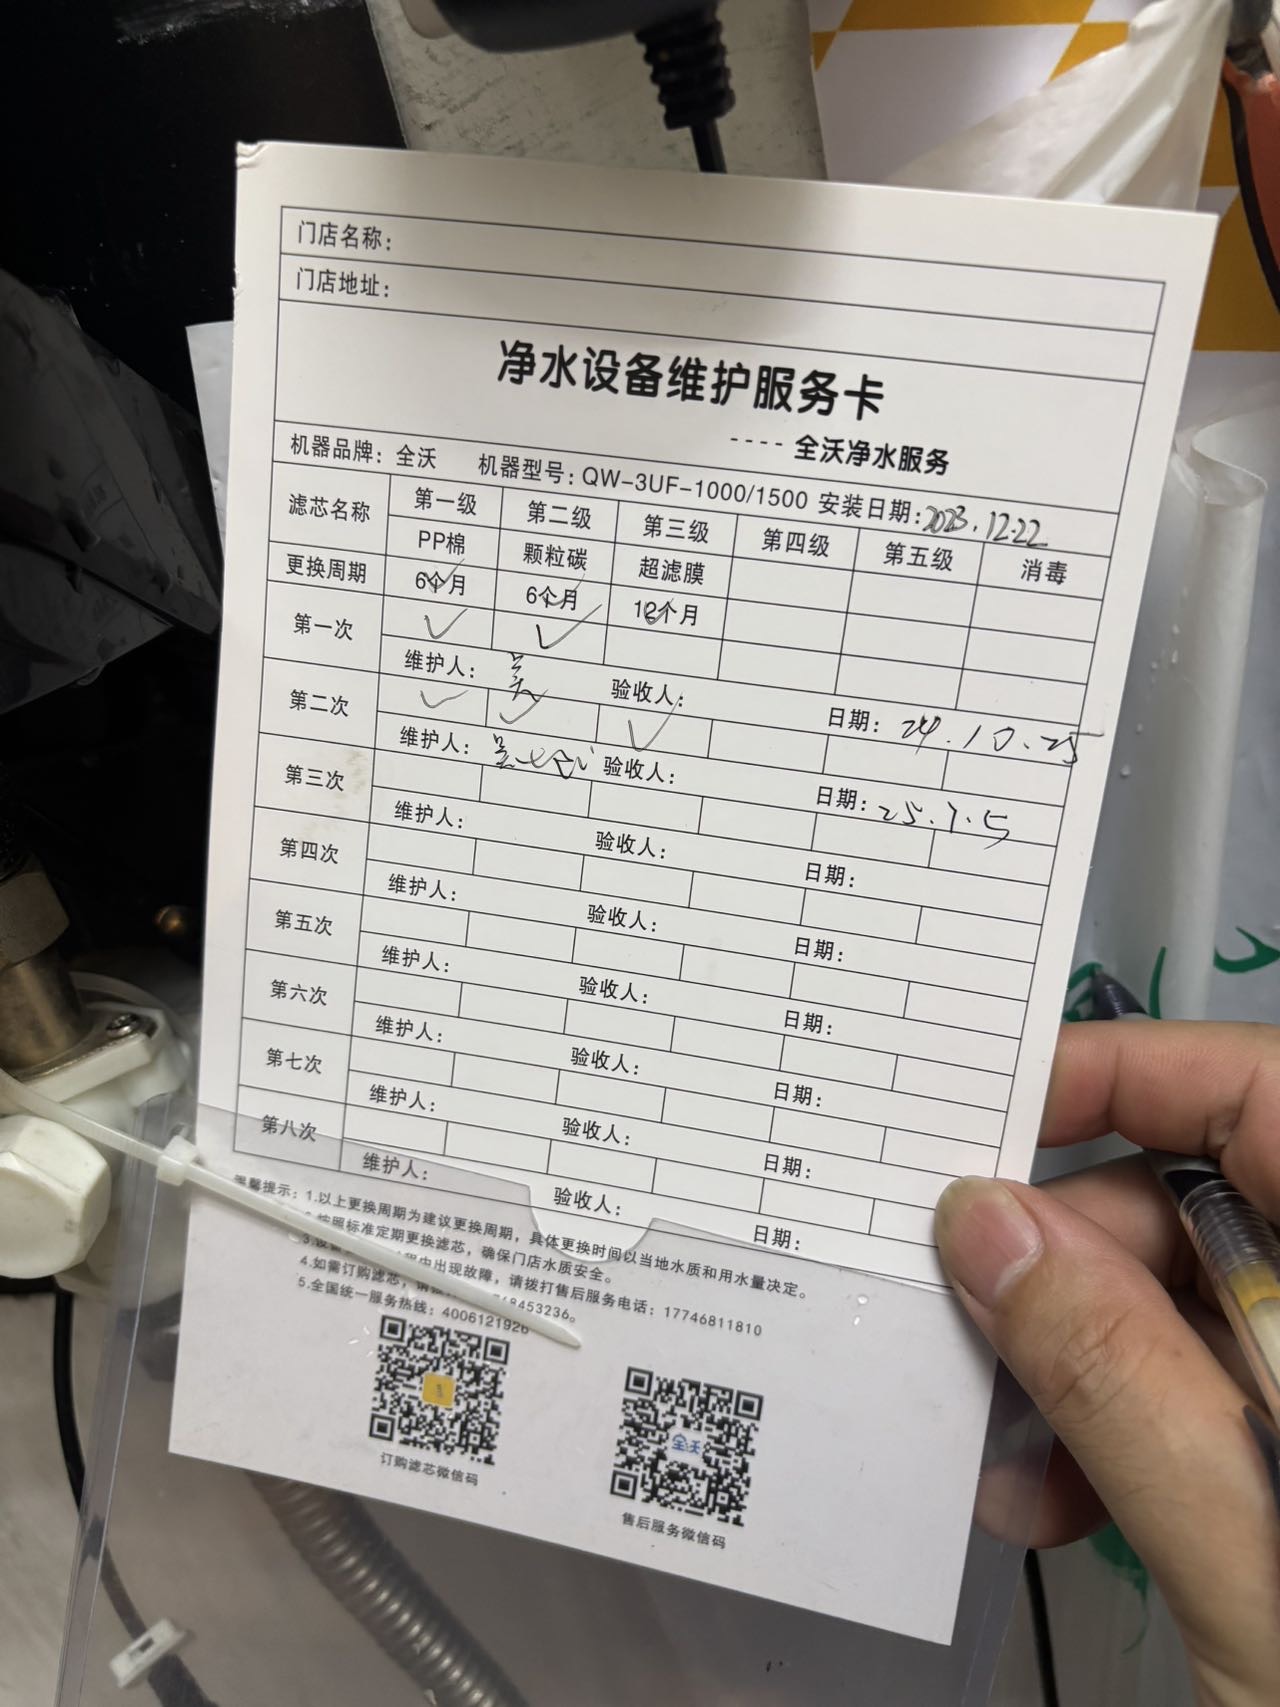 门店名称：
门店地址：
净水设备维护服务卡
----全沃净水服务
机器品牌：全沃 机器型号：QW-3UF-1000/1500 安装日期：2023.12.22
滤芯名称 第一级 第二级 第三级 第四级 第五级 消毒
PP棉 颗粒碳 超滤膜
更换周期 6个月 6个月 12个月
第一次 ✓ ✓
维护人：吴 验收人： 日期：24.10.25
第二次 ✓ ✓ ✓
维护人： 验收人： 日期：25.7.5
第三次
维护人： 验收人： 日期：
第四次
维护人： 验收人： 日期：
第五次
维护人： 验收人： 日期：
第六次
维护人： 验收人： 日期：
第七次
维护人： 验收人： 日期：
第八次
维护人： 验收人： 日期：
温馨提示：1.以上更换周期为建议更换周期，具体更换时间以当地水质和用水量决定。
按照标准定期更换滤芯，确保门店水质安全。
3.设备 程中出现故障，请拨打售后服务电话：17746811810
4.如需订购滤芯，请 68453236。
5.全国统一服务热线：4006121926
全沃
订购滤芯微信码
售后服务微信码